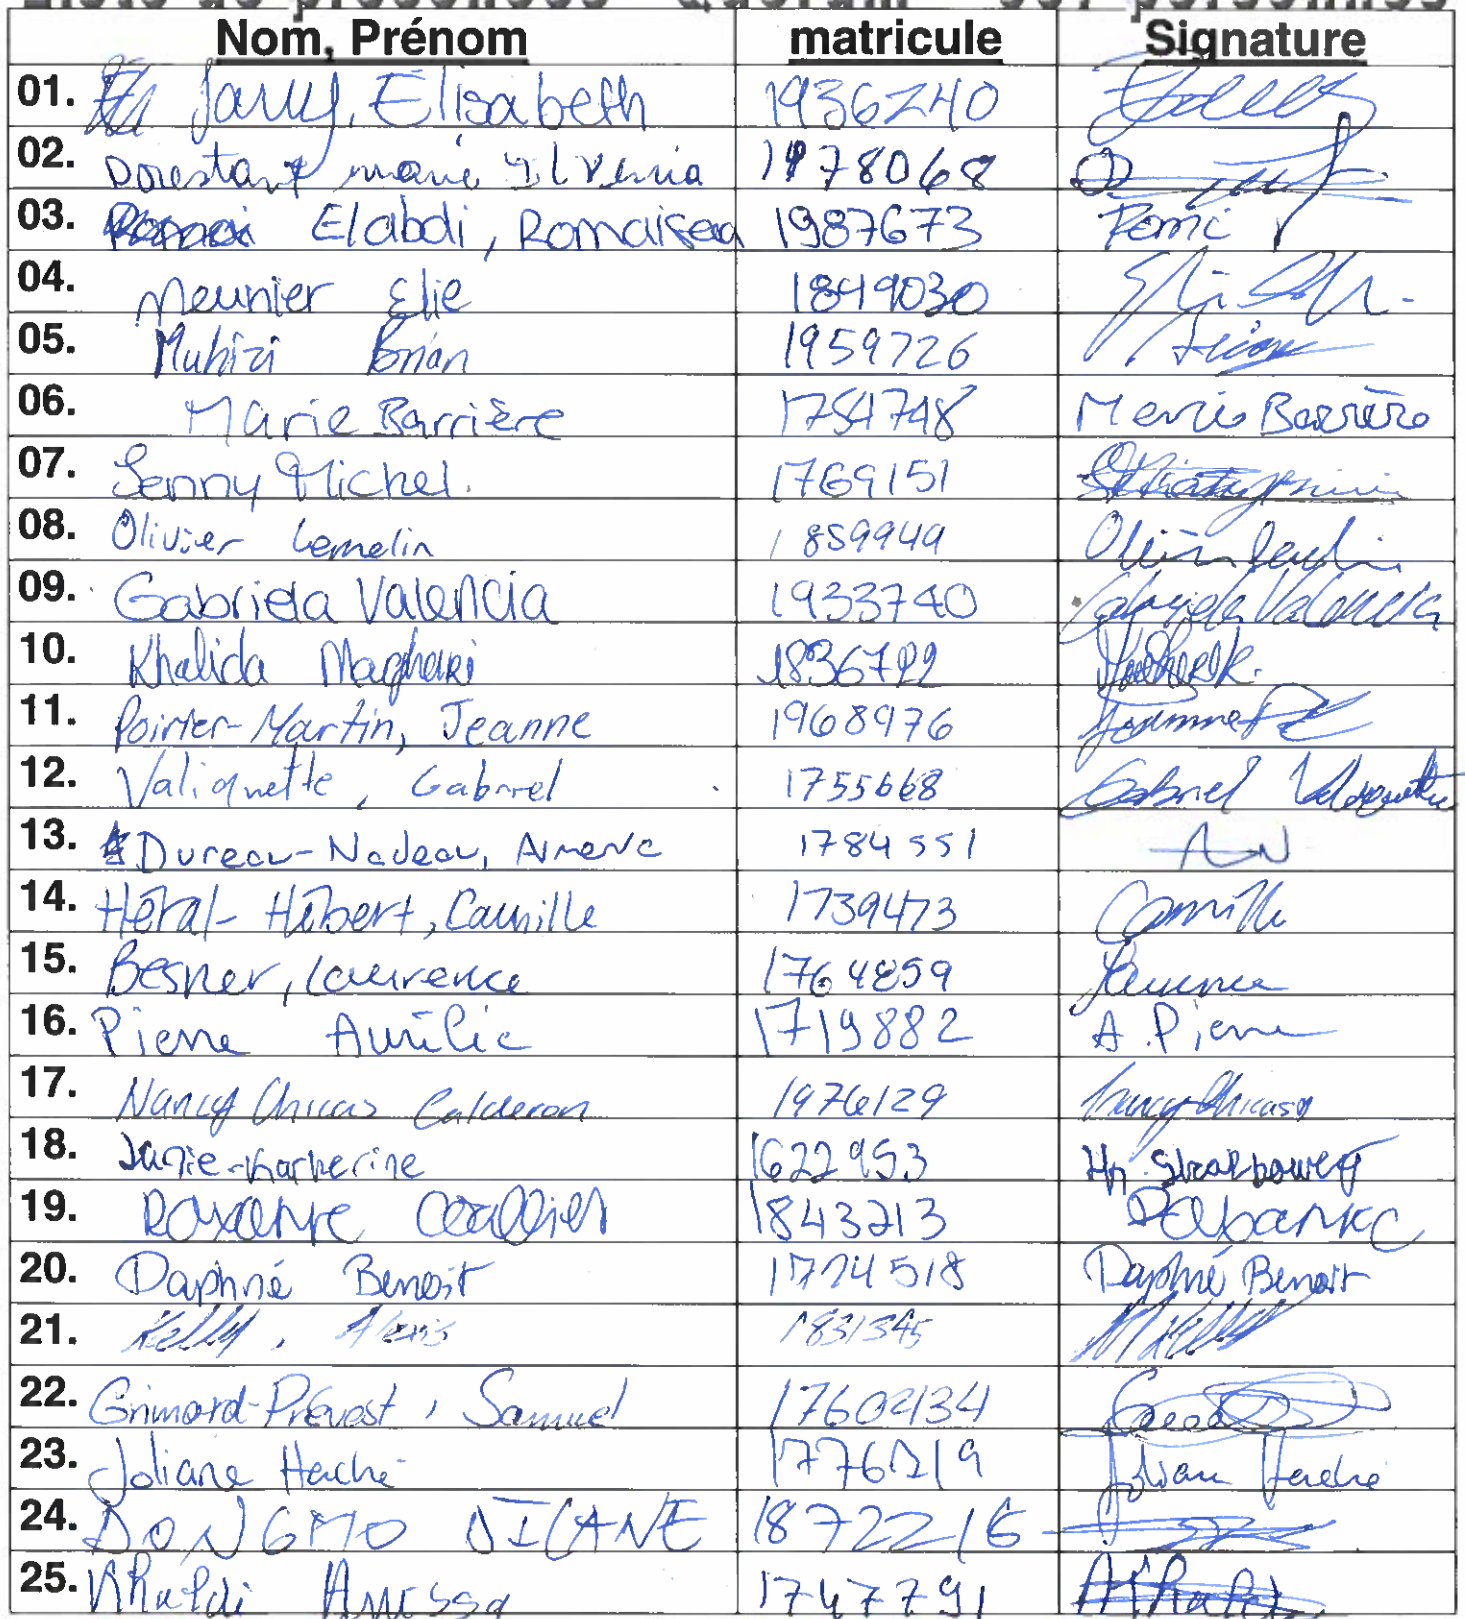 Liste de présences Quorum personnes
Nom, Prénom matricule Signature
01. Jamy, Elisabeth 1936240
02. Dorestant marie 1978068
03. Elabdi, Romaissa 1987673 Romi
04. Meunier Elie 1849030
05. Muhizi Brian 1959726
06. Marie Barrière 1754748 Marie Barrière
07. Jenny Michel. 1769151
08. Olivier Lemelin 1859949 Olivier Lemelin
09. Gabriela Valencia 1933740 Gabriela Valencia
10. Khalida Magheri 1836722
11. Poirier-Martin, Jeanne 1968976 Jeanne
12. Valiquette, Gabriel 1755668 Gabriel Valiquette
13. Dureau-Nadeau, 1784551 AN
14. Héral-Hébert, Camille 1739473 Camille
15. Besner, Laurence 1764859 Laurence
16. Pierre Aurélie 1719882 A. Pierre
17. Nancy Chicas Calderon 1976129 Nancy Chicas
18. Janie-Katherine 1622953
19. Roxanne 1843213
20. Daphné Benoit 1724518 Daphné Benoit
21. Kelly, Alexis 1831345
22. Grimard-Prévost, Samuel
23. Joliane Haché 1776219 Joliane Haché
24. DONGMO DICANE 1872216
25. Khaldi Anissa 1747791